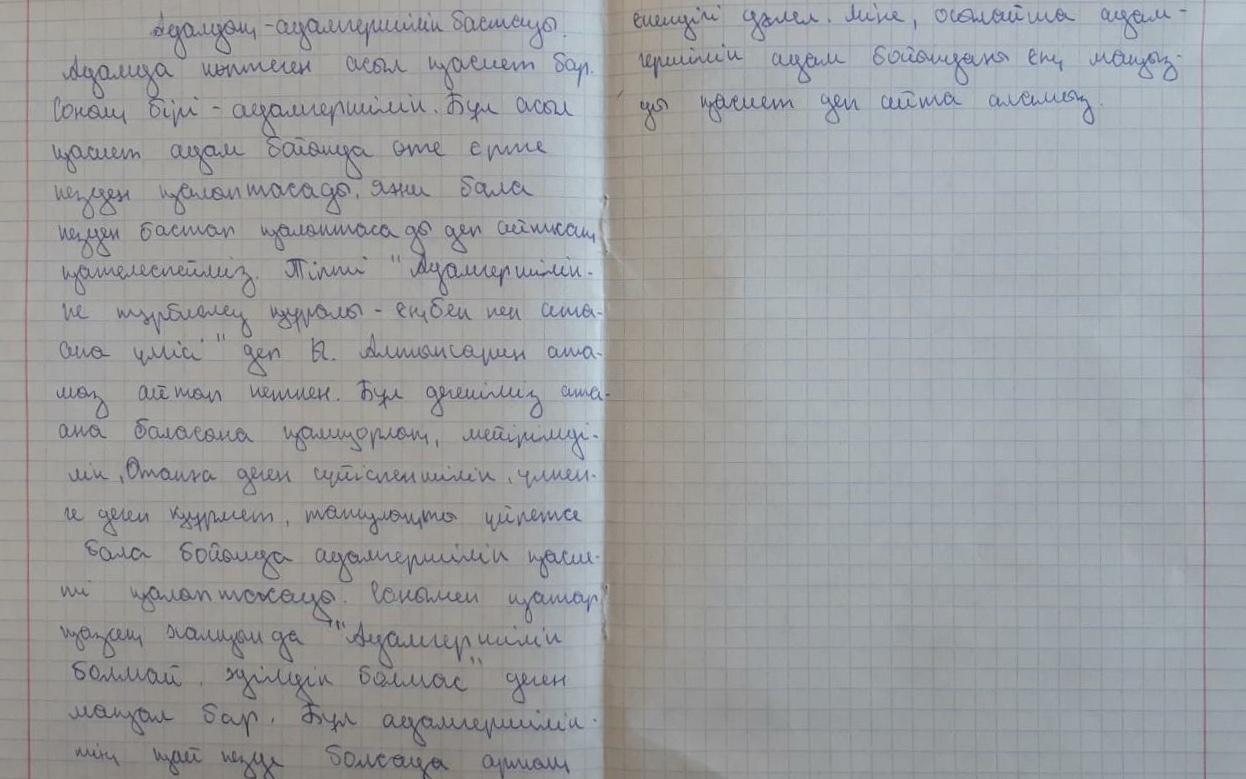 Адалдық - адамгершілік бастауы.
Адамда көптеген асыл қасиет бар.
Соның бірі - адамгершілік. Бұл асыл
қасиет адам бойында өте ерте
кезден қалыптасады, яғни бала
кезден бастап қалыптасады деп айтсақ
қателеспейміз. Тіпті "Адамгершілік-
ке тәрбиелеу құралы - еңбек пен ата-
ана үлгісі" деп Ы. Алтынсарин ата-
мыз айтып кеткен. Бұл дегеніміз ата-
ана баласына қамқорлық, мейірімді-
лік, Отанға деген сүйіспеншілік, үлкен-
ге деген құрмет, татулықты үйретсе
бала бойында адамгершілік қасие-
ті қалыптасады. Сонымен қатар
қазақ халқында "Адамгершілік
болмай, әділдік болмас" деген
мақал бар. Бұл адамгершілік-
тің қай кезде болсада артық
екендігі дәлел. Міне, осылайша адам-
гершілік адам бойындағы ең маңыз-
ды қасиет деп айта аламыз.